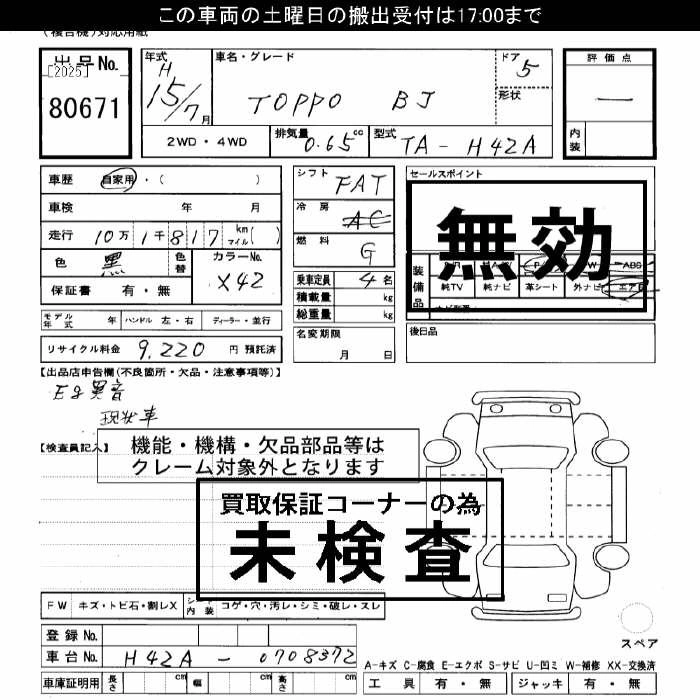 この車両の土曜日の搬出受付は17:00まで
(複合機)対応用紙
出品No.
[2025]
80671
年式
H
15/7月
車名・グレード
TOPPO BJ
ドア
5
形状
評価点
―
内装
2WD・4WD
排気量 0.65 cc
型式 TA-H42A
車歴 自家用・( )
車検 年 月
走行 10万1千817 km マイル( )
色 黒 色替
カラーNo. X42
保証書 有・無
シフト FAT
冷房 AC
燃料 G
乗車定員 4名
積載量 kg
総重量 kg
セールスポイント
無効
装備品
ABS
純TV 純ナビ 革シート 外ナビ エアB
モデル年式 年 ハンドル 左・右 ディーラー・並行
名変期限
月 日
後日品
リサイクル料金 9,220 円 預託済
【出品店申告欄(不良箇所・欠品・注意事項等)】
Eg異音
現状車
【検査員記入】
機能・機構・欠品部品等は
クレーム対象外となります
買取保証コーナーの為
未検査
FW キズ・トビ石・割レX シート内装 コゲ・穴・汚レ・シミ・破レ・スレ
登録No.
車台No. H42A-0708372
車庫証明用 長さ cm 幅 cm 高さ cm
スペア
A-キズ C-腐食 E-エクボ S-サビ U-凹ミ W-補修 XX-交換済
工具 有・無 ジャッキ 有・無